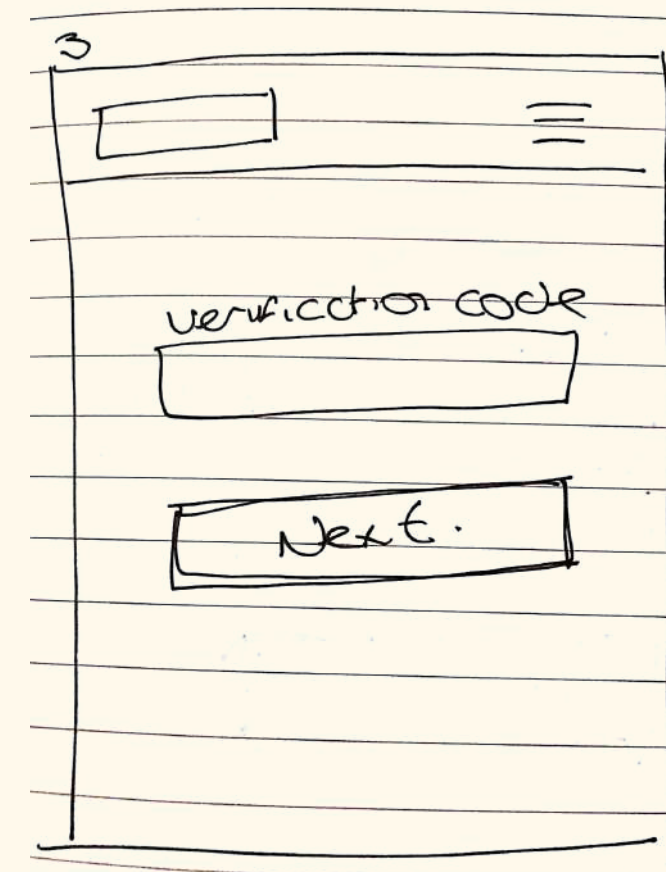 3
verification code
Next.